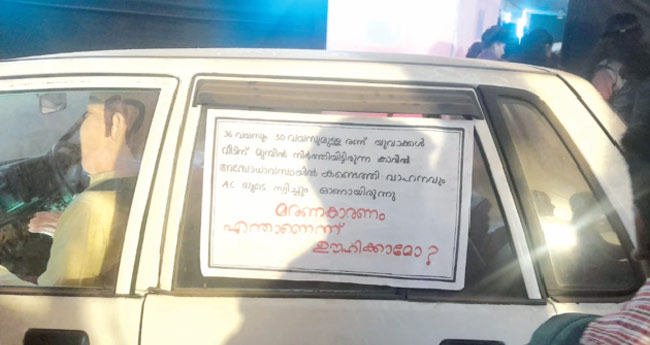 36 വയസും 30 വയസുമുള്ള രണ്ട് യുവാക്കൾ
വീടിന് മുമ്പിൽ നിർത്തിയിട്ടിരുന്ന കാറിൽ
അബോധാവസ്ഥയിൽ കണ്ടെത്തി വാഹനവും
AC യുടെ സ്വിച്ചും ഓണായിരുന്നു
മരണകാരണം
എന്താണെന്ന്
ഊഹിക്കാമോ?